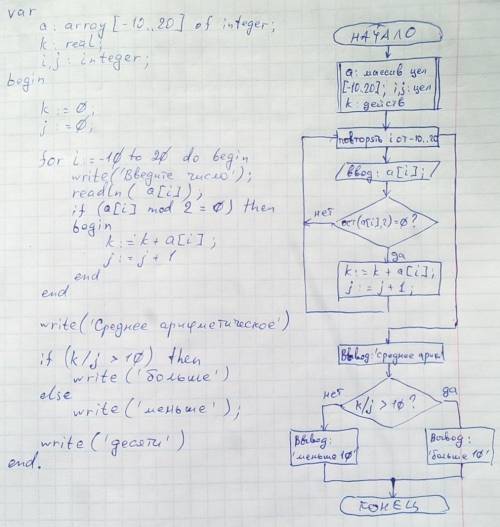 var
a: array[-10..20] of integer;
k: real;
i,j: integer;
begin
k:=0;
j:=0;
for i:=-10 to 20 do begin
write('Введите число');
readln(a[i]);
if (a[i] mod 2=0) then
begin
k:=k+a[i];
j:=j+1
end
end
write('Среднее арифметическое')
if (k/j>10) then
write('больше')
else
write('меньше');
write('десяти')
end.
НАЧАЛО
a: массив цел
[-10..20]; i,j: цел
k: действ
повторять i от -10..20
ввод: a[i];
ост(a[i],2)=0?
нет
да
k:=k+a[i];
j:=j+1;
Вывод: 'среднее ариф'
k/j>10?
нет
да
Вывод:
'меньше 10'
Вывод:
'больше 10'
КОНЕЦ